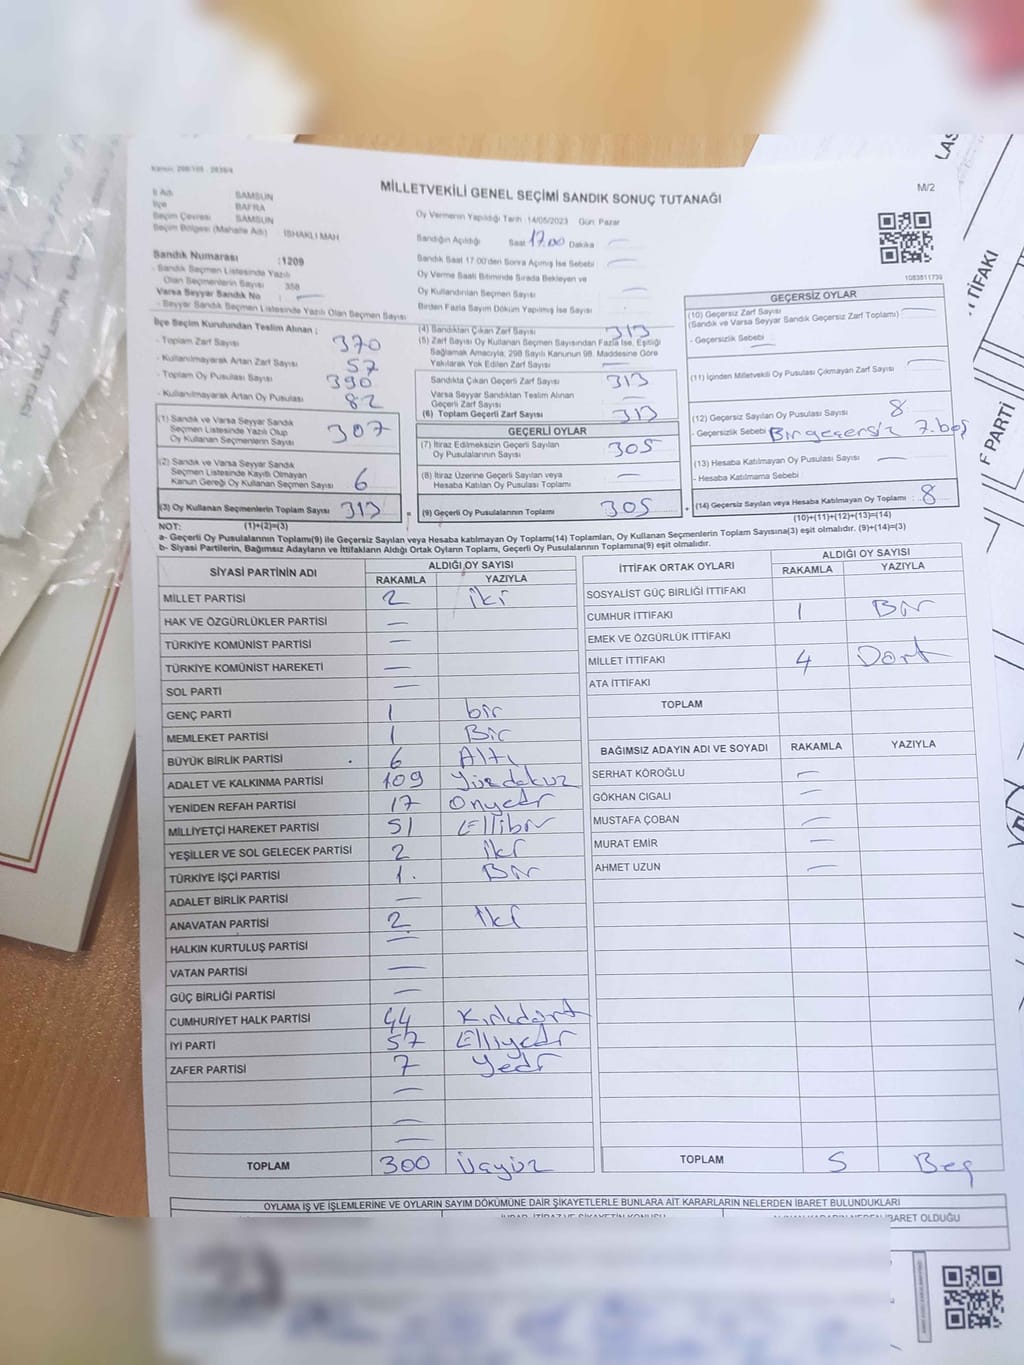 MİLLETVEKİLİ GENEL SEÇİMİ SANDIK SONUÇ TUTANAĞI
M/2
İl Adı SAMSUN
İlçe BAFRA
Seçim Çevresi SAMSUN
Seçim Bölgesi (Mahalle Adı) İSHAKLI MAH
Oy Vermenin Yapıldığı Tarih :14/05/2023 Gün: Pazar
Sandığın Açıldığı Saat 17.00 Dakika —
Sandık Saat 17:00'den Sonra Açılmış İse Sebebi —
Oy Verme Saati Bitiminde Sırada Bekleyen ve
Oy Kullandırılan Seçmen Sayısı —
Birden Fazla Sayım Döküm Yapılmış İse Sayısı
Sandık Numarası :1209
- Sandık Seçmen Listesinde Yazılı
Olan Seçmenlerin Sayısı 358
Varsa Seyyar Sandık No —
- Seyyar Sandık Seçmen Listesinde Yazılı Olan Seçmen Sayısı
1083811739
İlçe Seçim Kurulundan Teslim Alınan ;
- Toplam Zarf Sayısı 370
- Kullanılmayarak Artan Zarf Sayısı 57
- Toplam Oy Pusulası Sayısı 390
- Kullanılmayarak Artan Oy Pusulası 82
(1) Sandık ve Varsa Seyyar Sandık
Seçmen Listesinde Yazılı Olup
Oy Kullanan Seçmenlerin Sayısı 307
(2) Sandık ve Varsa Seyyar Sandık
Seçmen Listesinde Kayıtlı Olmayan
Kanun Gereği Oy Kullanan Seçmen Sayısı 6
(3) Oy Kullanan Seçmenlerin Toplam Sayısı 313
(4) Sandıktan Çıkan Zarf Sayısı 313
(5) Zarf Sayısı Oy Kullanan Seçmen Sayısından Fazla İse, Eşitliği
Sağlamak Amacıyla, 298 Sayılı Kanunun 98. Maddesine Göre
Yakılarak Yok Edilen Zarf Sayısı —
Sandıkta Çıkan Geçerli Zarf Sayısı 313
Varsa Seyyar Sandıktan Teslim Alınan
Geçerli Zarf Sayısı —
(6) Toplam Geçerli Zarf Sayısı 313
GEÇERLİ OYLAR
(7) İtiraz Edilmeksizin Geçerli Sayılan
Oy Pusulalarının Sayısı 305
(8) İtiraz Üzerine Geçerli Sayılan veya
Hesaba Katılan Oy Pusulası Toplamı —
(9) Geçerli Oy Pusulalarının Toplamı 305
GEÇERSİZ OYLAR
(10) Geçersiz Zarf Sayısı
(Sandık ve Varsa Seyyar Sandık Geçersiz Zarf Toplamı) —
- Geçersizlik Sebebi —
(11) İçinden Milletvekili Oy Pusulası Çıkmayan Zarf Sayısı —
(12) Geçersiz Sayılan Oy Pusulası Sayısı 8
- Geçersizlik Sebebi Bir geçersiz 7. boş
(13) Hesaba Katılmayan Oy Pusulası Sayısı —
- Hesaba Katılmama Sebebi
(14) Geçersiz Sayılan veya Hesaba Katılmayan Oy Toplamı : 8
NOT: (1)+(2)=(3) (10)+(11)+(12)+(13)=(14)
a- Geçerli Oy Pusulalarının Toplamı(9) ile Geçersiz Sayılan veya Hesaba katılmayan Oy Toplamı(14) Toplamları, Oy Kullanan Seçmenlerin Toplam Sayısına(3) eşit olmalıdır. (9)+(14)=(3)
b- Siyasi Partilerin, Bağımsız Adayların ve İttifakların Aldığı Ortak Oyların Toplamı, Geçerli Oy Pusulalarının Toplamına(9) eşit olmalıdır.
SİYASİ PARTİNİN ADI ALDIĞI OY SAYISI
RAKAMLA YAZIYLA
MİLLET PARTİSİ 2 iki
HAK VE ÖZGÜRLÜKLER PARTİSİ —
TÜRKİYE KOMÜNİST PARTİSİ —
TÜRKİYE KOMÜNİST HAREKETİ —
SOL PARTİ —
GENÇ PARTİ 1 bir
MEMLEKET PARTİSİ 1 Bir
BÜYÜK BİRLİK PARTİSİ 6 Altı
ADALET VE KALKINMA PARTİSİ 109 Yüzdokuz
YENİDEN REFAH PARTİSİ 17 Onyedi
MİLLİYETÇİ HAREKET PARTİSİ 51 Ellibir
YEŞİLLER VE SOL GELECEK PARTİSİ 2 iki
TÜRKİYE İŞÇİ PARTİSİ 1. Bir
ADALET BİRLİK PARTİSİ —
ANAVATAN PARTİSİ 2 İki
HALKIN KURTULUŞ PARTİSİ —
VATAN PARTİSİ —
GÜÇ BİRLİĞİ PARTİSİ —
CUMHURİYET HALK PARTİSİ 44 Kırkdört
İYİ PARTİ 57 Elliyedi
ZAFER PARTİSİ 7 Yedi
—
—
—
TOPLAM 300 Üçyüz
İTTİFAK ORTAK OYLARI ALDIĞI OY SAYISI
RAKAMLA YAZIYLA
SOSYALİST GÜÇ BİRLİĞİ İTTİFAKI
CUMHUR İTTİFAKI 1 Bir
EMEK VE ÖZGÜRLÜK İTTİFAKI
MİLLET İTTİFAKI 4 Dört
ATA İTTİFAKI
TOPLAM
BAĞIMSIZ ADAYIN ADI VE SOYADI RAKAMLA YAZIYLA
SERHAT KÖROĞLU —
GÖKHAN CIGALI —
MUSTAFA ÇOBAN —
MURAT EMİR —
AHMET UZUN —
TOPLAM 5 Beş
OYLAMA İŞ VE İŞLEMLERİNE VE OYLARIN SAYIM DÖKÜMÜNE DAİR ŞİKAYETLERLE BUNLARA AİT KARARLARIN NELERDEN İBARET BULUNDUKLARI
BARET OLDUĞU
LAS
TİFAKI
F PARTİ